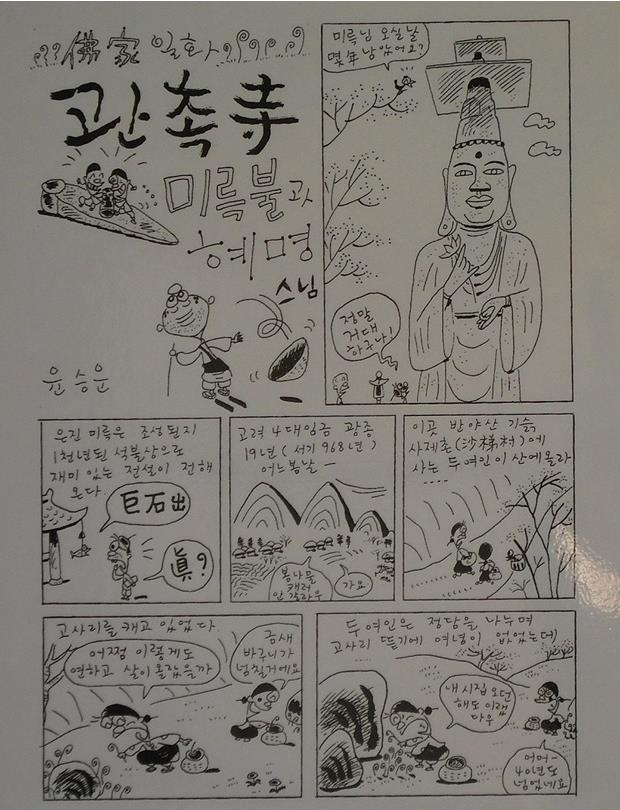 佛家 일화
관촉寺
미륵불과
혜명
스님
윤승운
미륵님 오실날
몇年 남았어요?
정말
거대
하구나!
은진 미륵은 조성된지
1천년된 석불상으로
재미 있는 전설이 전해
온다.
巨石出
眞?
고려 4대임금 광종
19년 (서기 968년)
어느봄날ー
봄나물
캐러
안갈라우
가요
이곳 반야산 기슭
사제촌(沙梯村)에
사는 두여인이 산에올라
‥‥
고사리를 캐고 있었다.
어쩜 이렇게도
연하고 살이 올랐을까
금새
바구니가
넘칠거에요
두 여인은 정담을 나누며
고사리 뜯기에 여념이 없었는데
내 시집 오던
해도 이랬
다우
어머ー
40년도
넘었네요